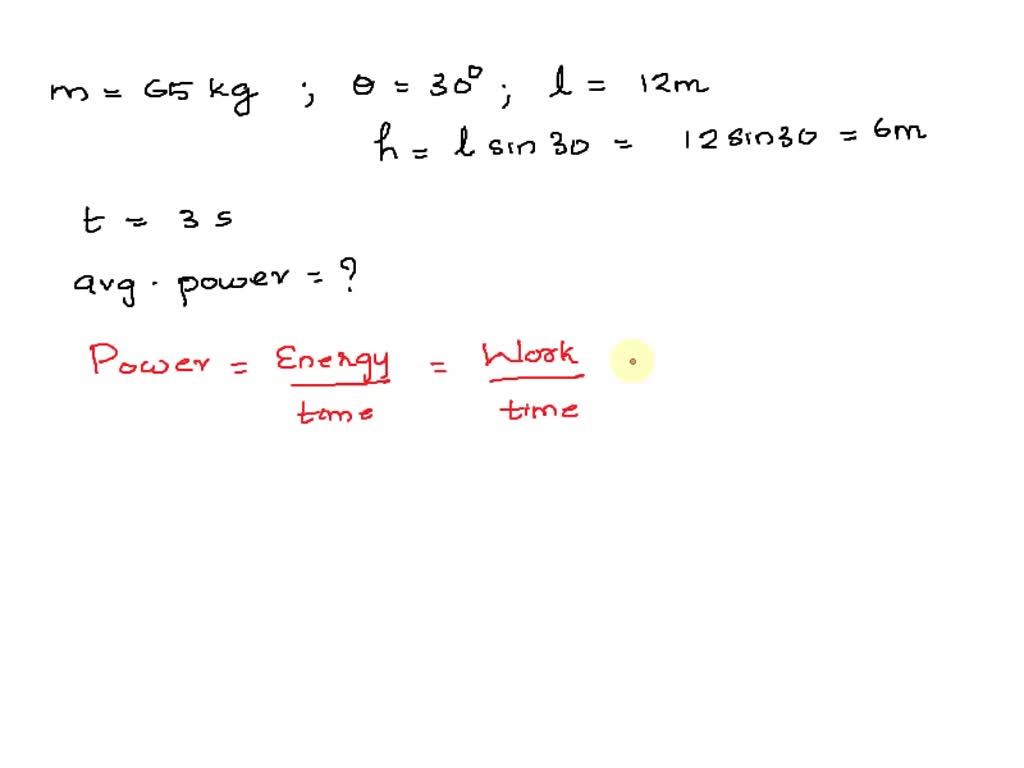 m = 65 kg ; θ = 30° ; l = 12m
h = l sin 30 = 12 sin30 = 6m
t = 3 s
avg. power = ?
Power = Energy / time = Work / time